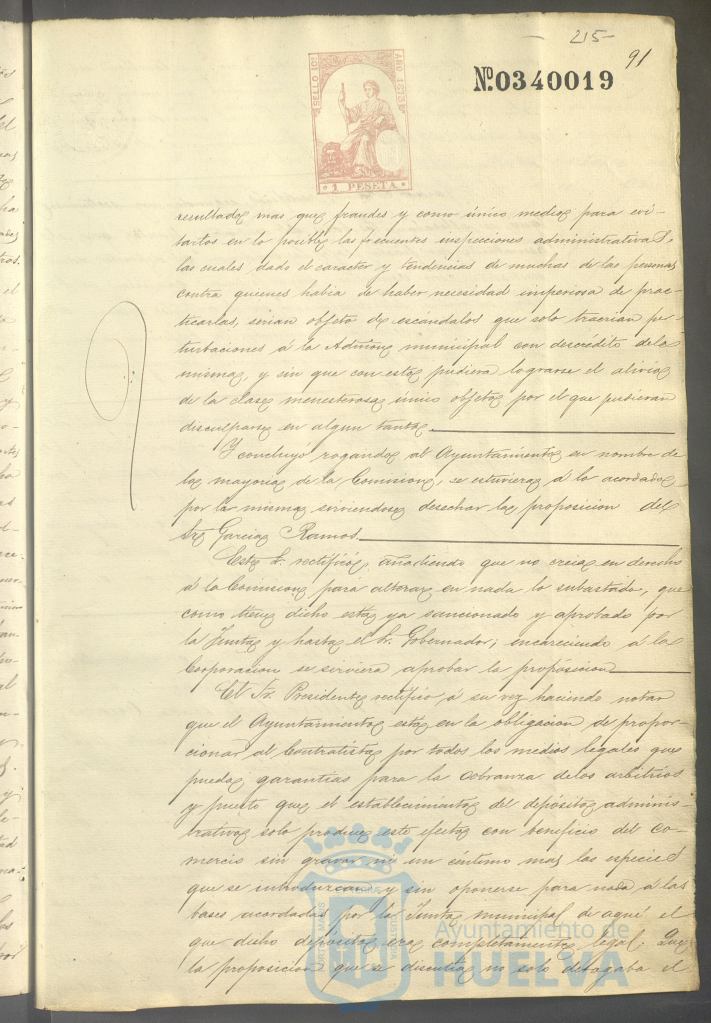 215-
91
SELLO 10º
AÑO 1873
Nº 0340019
1 PESETA
resultados mas que fraudes y como único medio para evi-
tarlos en lo posible las frecuentes inspecciones administrativas,
las cuales, dado el caracter y tendencias de muchas de las personas
contra quienes habia de haber necesidad imperiosa de prac-
ticarlas, serian objeto de escándalos que solo traerian per-
turbaciones á la Admon municipal con descrédito de la
misma, y sin que con esto pudiera lograrse el alivio
de la clase menesterosa único objeto por el que pudieran
disculparse en algun tanto.
Y concluyó rogando al Ayuntamiento en nombre de
la mayoria de la Comision, se estuviera á lo acordado
por la misma sirviendose desechar la proposicion del
Sr Garcia Ramos
Este Sr. rectificó, añadiendo que no creia en derecho
á la Comision para alterar en nada lo subastado, que
como tiene dicho esta ya sancionado y aprobado por
la Junta y hasta el Sr. Gobernador; encareciendo á la
Corporacion se sirviera aprobar la proposicion
El Sr. Presidente rectificó á su vez haciendo notar
que el Ayuntamiento está en la obligacion de propor-
cionar al Contratista por todos los medios legales que
pueda, garantias para la cobranza de los arbitrios
y puesto que el establecimiento del depósito adminis-
trativo solo produce este efecto con beneficio del co-
mercio sin gravar ni un céntimo mas las especies
que se introduzcan y sin oponerse para nada á las
bases acordadas por la Junta municipal de aqui el
que dicho deposito era completamente legal; Que
la proposicion que se discutia no solo derogaba el
Ayuntamiento de
HUELVA